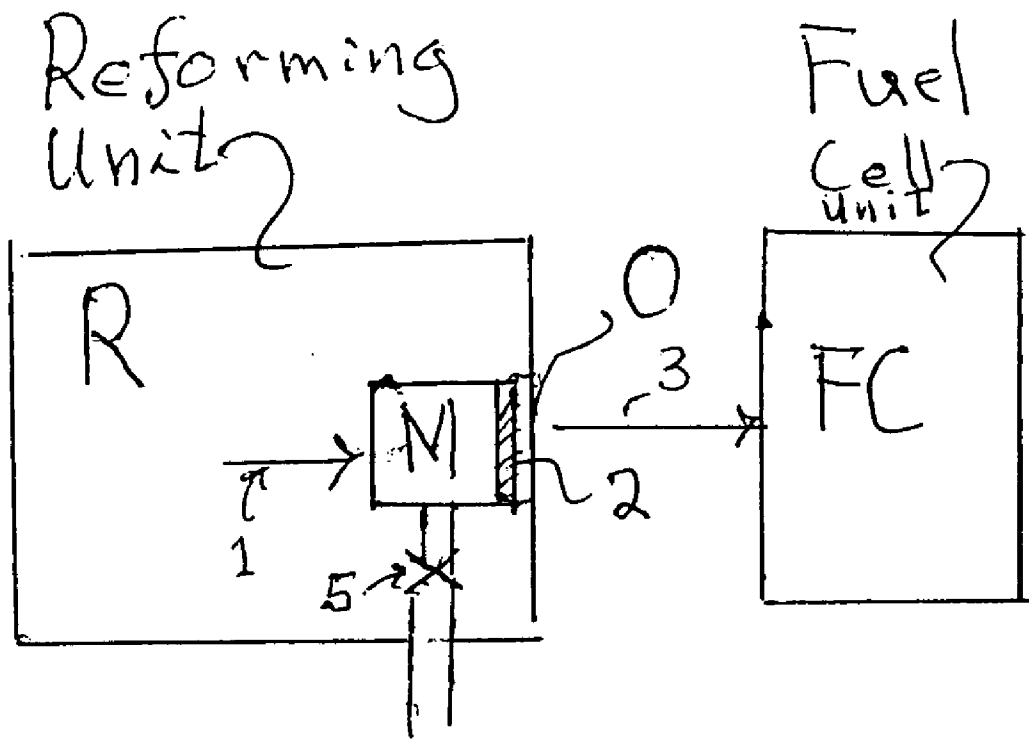 Reforming
Unit
Fuel
Cell
unit
R
O
3
FC
M
1
2
5